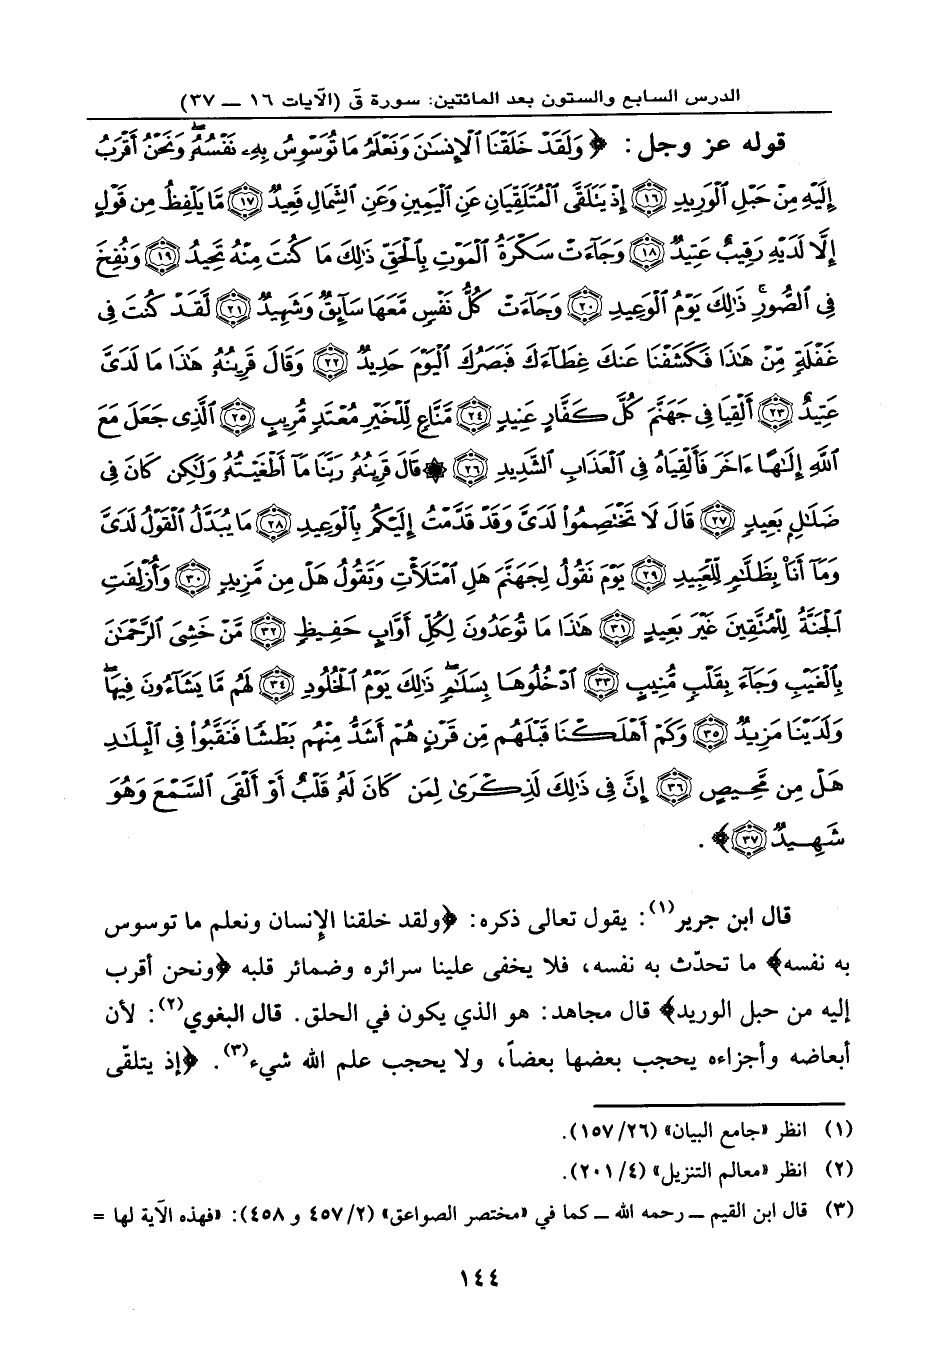 الدرس السابع والستون بعد المائتين: سورة قۤ (الآيات ١٦ ــ ٣٧)
قوله عز وجل: ﴿وَلَقَدْ خَلَقْنَا ٱلْإِنسَٰنَ وَنَعْلَمُ مَا تُوَسْوِسُ بِهِۦ نَفْسُهُۥ ۖ وَنَحْنُ أَقْرَبُ
إِلَيْهِ مِنْ حَبْلِ ٱلْوَرِيدِ ﴿١٦﴾ إِذْ يَتَلَقَّى ٱلْمُتَلَقِّيَانِ عَنِ ٱلْيَمِينِ وَعَنِ ٱلشِّمَالِ قَعِيدٌ ﴿١٧﴾ مَّا يَلْفِظُ مِن قَوْلٍ
إِلَّا لَدَيْهِ رَقِيبٌ عَتِيدٌ ﴿١٨﴾ وَجَآءَتْ سَكْرَةُ ٱلْمَوْتِ بِٱلْحَقِّ ذَٰلِكَ مَا كُنتَ مِنْهُ تَحِيدُ ﴿١٩﴾ وَنُفِخَ
فِى ٱلصُّورِ ۚ ذَٰلِكَ يَوْمُ ٱلْوَعِيدِ ﴿٢٠﴾ وَجَآءَتْ كُلُّ نَفْسٍ مَّعَهَا سَآئِقٌ وَشَهِيدٌ ﴿٢١﴾ لَّقَدْ كُنتَ فِى
غَفْلَةٍ مِّنْ هَٰذَا فَكَشَفْنَا عَنكَ غِطَآءَكَ فَبَصَرُكَ ٱلْيَوْمَ حَدِيدٌ ﴿٢٢﴾ وَقَالَ قَرِينُهُۥ هَٰذَا مَا لَدَىَّ
عَتِيدٌ ﴿٢٣﴾ أَلْقِيَا فِى جَهَنَّمَ كُلَّ كَفَّارٍ عَنِيدٍ ﴿٢٤﴾ مَّنَّاعٍ لِّلْخَيْرِ مُعْتَدٍ مُّرِيبٍ ﴿٢٥﴾ ٱلَّذِى جَعَلَ مَعَ
ٱللَّهِ إِلَٰهًا ءَاخَرَ فَأَلْقِيَاهُ فِى ٱلْعَذَابِ ٱلشَّدِيدِ ﴿٢٦﴾ ۞ قَالَ قَرِينُهُۥ رَبَّنَا مَآ أَطْغَيْتُهُۥ وَلَٰكِن كَانَ فِى
ضَلَٰلٍۭ بَعِيدٍ ﴿٢٧﴾ قَالَ لَا تَخْتَصِمُوا۟ لَدَىَّ وَقَدْ قَدَّمْتُ إِلَيْكُم بِٱلْوَعِيدِ ﴿٢٨﴾ مَا يُبَدَّلُ ٱلْقَوْلُ لَدَىَّ
وَمَآ أَنَا۠ بِظَلَّٰمٍ لِّلْعَبِيدِ ﴿٢٩﴾ يَوْمَ نَقُولُ لِجَهَنَّمَ هَلِ ٱمْتَلَأْتِ وَتَقُولُ هَلْ مِن مَّزِيدٍ ﴿٣٠﴾ وَأُزْلِفَتِ
ٱلْجَنَّةُ لِلْمُتَّقِينَ غَيْرَ بَعِيدٍ ﴿٣١﴾ هَٰذَا مَا تُوعَدُونَ لِكُلِّ أَوَّابٍ حَفِيظٍ ﴿٣٢﴾ مَّنْ خَشِىَ ٱلرَّحْمَٰنَ
بِٱلْغَيْبِ وَجَآءَ بِقَلْبٍ مُّنِيبٍ ﴿٣٣﴾ ٱدْخُلُوهَا بِسَلَٰمٍ ۖ ذَٰلِكَ يَوْمُ ٱلْخُلُودِ ﴿٣٤﴾ لَهُم مَّا يَشَآءُونَ فِيهَا ۖ
وَلَدَيْنَا مَزِيدٌ ﴿٣٥﴾ وَكَمْ أَهْلَكْنَا قَبْلَهُم مِّن قَرْنٍ هُمْ أَشَدُّ مِنْهُم بَطْشًا فَنَقَّبُوا۟ فِى ٱلْبِلَٰدِ
هَلْ مِن مَّحِيصٍ ﴿٣٦﴾ إِنَّ فِى ذَٰلِكَ لَذِكْرَىٰ لِمَن كَانَ لَهُۥ قَلْبٌ أَوْ أَلْقَى ٱلسَّمْعَ وَهُوَ
شَهِيدٌ ﴿٣٧﴾﴾.
قال ابن جرير(١): يقول تعالى ذكره: ﴿ولقد خلقنا الإنسان ونعلم ما توسوس
به نفسه﴾ ما تحدّث به نفسه، فلا يخفى علينا سرائره وضمائر قلبه ﴿ونحن أقرب
إليه من حبل الوريد﴾ قال مجاهد: هو الذي يكون في الحلق. قال البغوي(٢): لأن
أبعاضه وأجزاءه يحجب بعضها بعضاً، ولا يحجب علم الله شيء(٣). ﴿إذ يتلقّى
(١) انظر «جامع البيان» (١٥٧/٢٦).
(٢) انظر «معالم التنزيل» (٢٠١/٤).
(٣) قال ابن القيم ــ رحمه الله ــ كما في «مختصر الصواعق» (٤٥٧/٢ و ٤٥٨): «فهذه الآية لها =
١٤٤